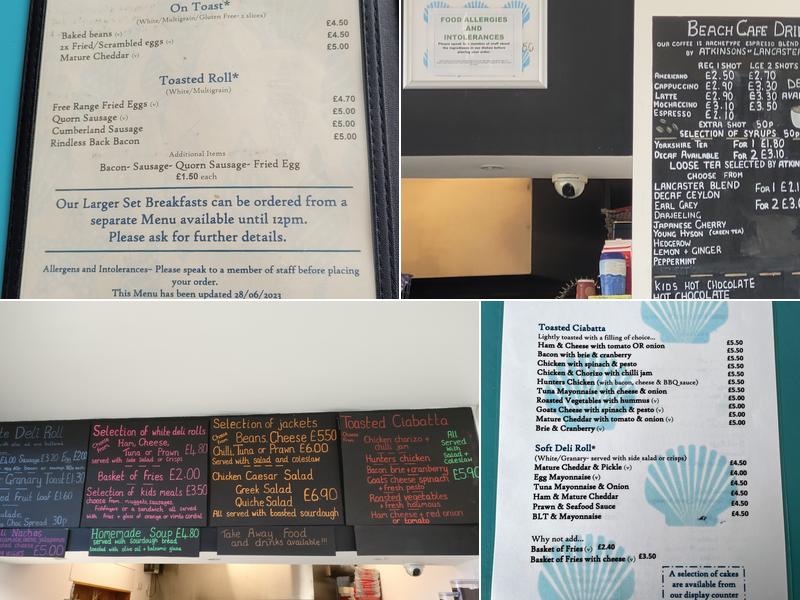 On Toast*
(White/Multigrain/Gluten Free- 2 slices)
Baked beans (v) £4.50
2x Fried/Scrambled eggs (v) £4.50
Mature Cheddar (v) £5.00
Toasted Roll*
(White/Multigrain)
Free Range Fried Eggs (v) £4.70
Quorn Sausage (v) £5.00
Cumberland Sausage £5.00
Rindless Back Bacon £5.00
Additional Items
Bacon- Sausage- Quorn Sausage- Fried Egg
£1.50 each
Our Larger Set Breakfasts can be ordered from a
separate Menu available until 12pm.
Please ask for further details.
Allergens and Intolerances– Please speak to a member of staff before placing
your order.
This Menu has been updated 28/06/2023
FOOD ALLERGIES
AND
INTOLERANCES
Please speak to a member of staff about
the ingredients in our dishes before
placing your order.
BEACH CAFE DRI
OUR COFFEE IS ARCHETYPE ESPRESSO BLEND
BY ATKINSONS OF LANCASTER
REG 1 SHOT LGE 2 SHOTS
AMERICANO £2.50 £2.70
CAPPUCCINO £2.90 £3.30 DE
LATTE £2.90 £3.30 AVA
MOCHACCINO £3.10 £3.50
ESPRESSO £2.10
EXTRA SHOT 50p
SELECTION OF SYRUPS 50p
YORKSHIRE TEA FOR 1 £1.80
DECAF AVAILABLE FOR 2 £3.10
LOOSE TEA SELECTED BY ATKIN
CHOOSE FROM
LANCASTER BLEND FOR 1 £2.1
DECAF CEYLON
EARL GREY FOR 2 £3.
DARJEELING
JAPANESE CHERRY
YOUNG HYSON (GREEN TEA)
HEDGEROW
LEMON + GINGER
PEPPERMINT
KIDS HOT CHOCOLATE
HOT CHOCOLATE
te Deli Roll
Granary Toast £1.30
ed fruit loaf £1.60
Choc Spread 30p
li Nachos
£5.00
Selection of white deli rolls
Choose From Ham, Cheese,
Tuna or Prawn £4.80
served with side salad or crisps
Basket of Fries £2.00
Selection of kids meals £3.50
choose from nuggets, sausages,
fishfingers or a sandwich all served
with fries + glass of orange or vimto cordial
Homemade Soup £4.80
served with sourdough bread
toasted with olive oil + balsamic glaze
Selection of jackets
Choose From Beans, Cheese £5.50
Chilli, Tuna or Prawn £6.00
Served with salad and coleslaw
Chicken Caesar Salad
Greek Salad £6.90
Quiche Salad
All served with toasted sourdough
Take Away Food
and drinks available!!!
Toasted Ciabatta
Choose From
Chicken chorizo +
chilli jam
Hunters chicken
Bacon brie + cranberry
Goats cheese spinach
+ fresh pesto
Roasted vegetables
+ fresh houmous
Ham cheese + red onion
or tomato
All
Served
with
Salad +
Coleslaw
£5.90
Toasted Ciabatta
Lightly toasted with a filling of choice...
Ham & Cheese with tomato OR onion £5.50
Bacon with brie & cranberry £5.50
Chicken with spinach & pesto £5.50
Chicken & Chorizo with chilli jam £5.50
Hunters Chicken (with bacon, cheese & BBQ sauce) £5.50
Tuna Mayonnaise with cheese & onion £5.50
Roasted Vegetables with hummus (v) £5.50
Goats Cheese with spinach & pesto (v) £5.50
Mature Cheddar with tomato & onion (v) £5.00
Brie & Cranberry (v) £5.00
Soft Deli Roll*
(White/Granary- served with side salad or crisps)
Mature Cheddar & Pickle (v) £4.50
Egg Mayonnaise (v) £4.00
Tuna Mayonnaise & Onion £4.50
Ham & Mature Cheddar £4.50
Prawn & Seafood Sauce £4.50
BLT & Mayonnaise £4.50
Why not add...
Basket of Fries (v) £2.40
Basket of Fries with cheese (v) £3.50
A selection of cakes
are available from
our display counter